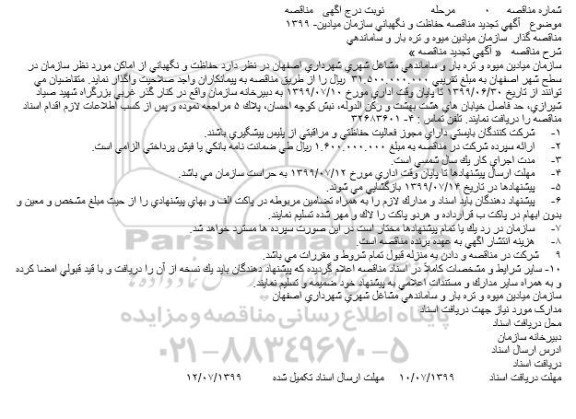 شماره مناقصه ۰ مرحله نوبت درج آگهی مناقصه
موضوع آگهي تجديد مناقصه حفاظت و نگهباني سازمان ميادين- ۱۳۹۹
مناقصه گذار سازمان ميادين ميوه و تره بار و ساماندهي
شرح مناقصه « آگهي تجديد مناقصه »
سازمان ميادين ميوه و تره بار و ساماندهي مشاغل شهري شهرداري اصفهان در نظر دارد حفاظت و نگهباني از اماكن مورد نظر سازمان در
سطح شهر اصفهان به مبلغ تقريبي ۳۱.۵۰۰.۰۰۰.۰۰۰ ريال را از طريق مناقصه به پيمانكاران واجد صلاحيت واگذار نمايد. متقاضيان مي
توانند از تاريخ ۱۳۹۹/۰۶/۳۰ تا پايان وقت اداري مورخ ۱۳۹۹/۰۷/۱۰ به دبيرخانه سازمان واقع در كنار گذر غربي بزرگراه شهيد صياد
شيرازي، حد فاصل خيابان هاي هشت بهشت و ركن الدوله، نبش كوچه احسان، پلاك ۵ مراجعه نموده و پس از كسب اطلاعات لازم اقدام اسناد
مناقصه را دريافت نمايند. تلفن تماس : ۴-۳۲۶۸۳۶۰۱
۱- شركت كنندگان بايستي داراي مجوز فعاليت حفاظتي و مراقبتي از پليس پيشگيري باشند.
۲- ارائه سپرده شركت در مناقصه به مبلغ ۱.۶۰۰.۰۰۰.۰۰۰ ريال طي ضمانت نامه بانكي يا فيش پرداختي الزامي است.
۳- مدت اجراي كار يك سال شمسي است.
۴- مهلت ارسال پيشنهادها تا پايان وقت اداري مورخ ۱۳۹۹/۰۷/۱۲ به حراست سازمان مي باشد.
۵- پيشنهادها در تاريخ ۱۳۹۹/۰۷/۱۴ بازگشايي مي شوند.
۶- پيشنهاد دهندگان بايد اسناد و مدارك لازم را به همراه تضامين مربوطه در پاكت الف و بهاي پيشنهادي را از حيث مبلغ مشخص و معين و
بدون ابهام در پاكت ب قرارداده و هردو پاكت را لاك و مهر شده تسليم نمايند.
۷- سازمان در رد يك يا تمام پيشنهادها مختار است در اين صورت سپرده ها مسترد خواهد شد.
۸- هزينه انتشار آگهي به عهده برنده مناقصه است.
۹ شركت در مناقصه و دادن به منزله قبول تمام شروط و مقررات مي باشد.
۱۰- ساير شرايط و مشخصات كاملاً در اسناد مناقصه اعلام گرديده كه پيشنهاد دهندگان بايد يك نسخه از آن را دريافت و با قيد قبولي امضا كرده
و به همراه ساير مدارك و مستندات اعلامي به پيشنهاد خود ضميمه و تسليم نمايند.
سازمان ميادين ميوه و تره بار و ساماندهي مشاغل شهري شهرداري اصفهان
مدارک مورد نیاز جهت دریافت اسناد
محل دریافت اسناد
دبیرخانه سازمان
آدرس ارسال اسناد
دریافت اسناد
مهلت دریافت اسناد ۱۰/۰۷/۱۳۹۹ مهلت ارسال اسناد تکمیل شده ۱۲/۰۷/۱۳۹۹
ParsNamadData
پایگاه اطلاع رسانی مناقصه و مزایده
۰۲۱-۸۸۳۴۹۶۷۰-۵